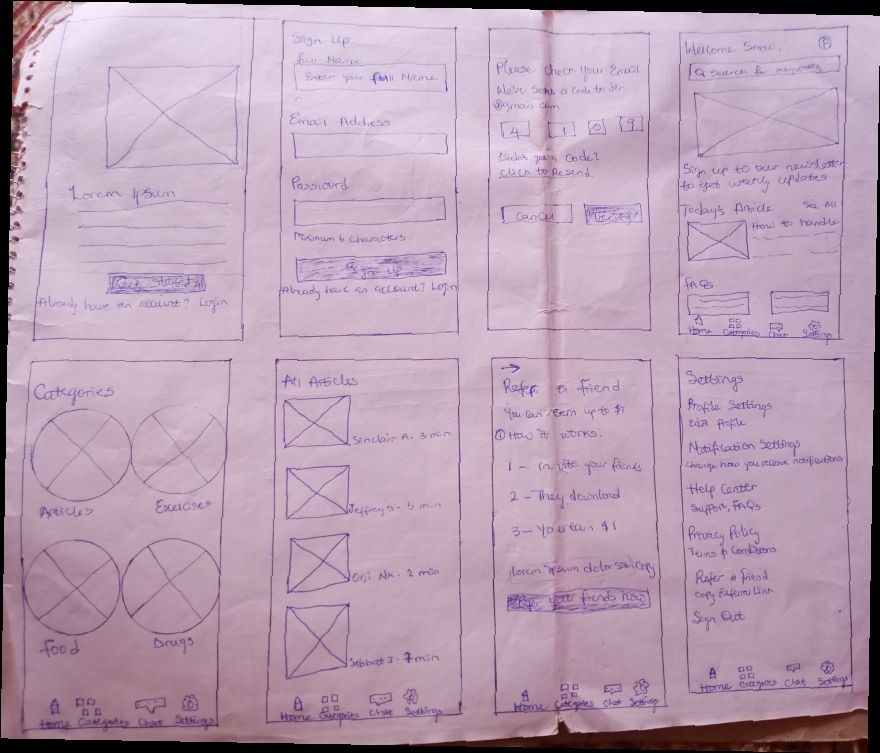 Lorem Ipsum
Get Started
Already have an account? Login
Sign Up
Full Name
Enter your Full Name
Email Address
Password
Minimum 6 characters
Sign up
Already have an account? Login
Please check Your Email
We've a code to
@gmail.com
4 1 0 9
Didn't a Code?
click to Resend
Cancel Verify
Welcome Snow,
Search for keywords
Sign up to our newsletter
to get weekly updates
Today's Article See All
How to handle
FAQs
Home Categories Chat Settings
Categories
Articles Exercises
Food Drugs
Home Categories Chat Settings
All Articles
Sinclair A. 3 min
Jeffrey S. 5 min
Orji Nk. 2 min
J. 7 min
Home Categories Chat Settings
Refer a friend
You can earn up to $1
How it works:
1 - Invite your friends
2 - They download
3 - You earn $1
Lorem ipsum dolor sit copy
Refer your friends now
Home Categories Chat Settings
Settings
Profile Settings
Edit Profile
Notification Settings
Change how you receive notifications
Help Center
Support, FAQs
Privacy Policy
Terms & Conditions
Refer a friend
Copy Referral Link
Sign Out
Home Categories Chat Settings